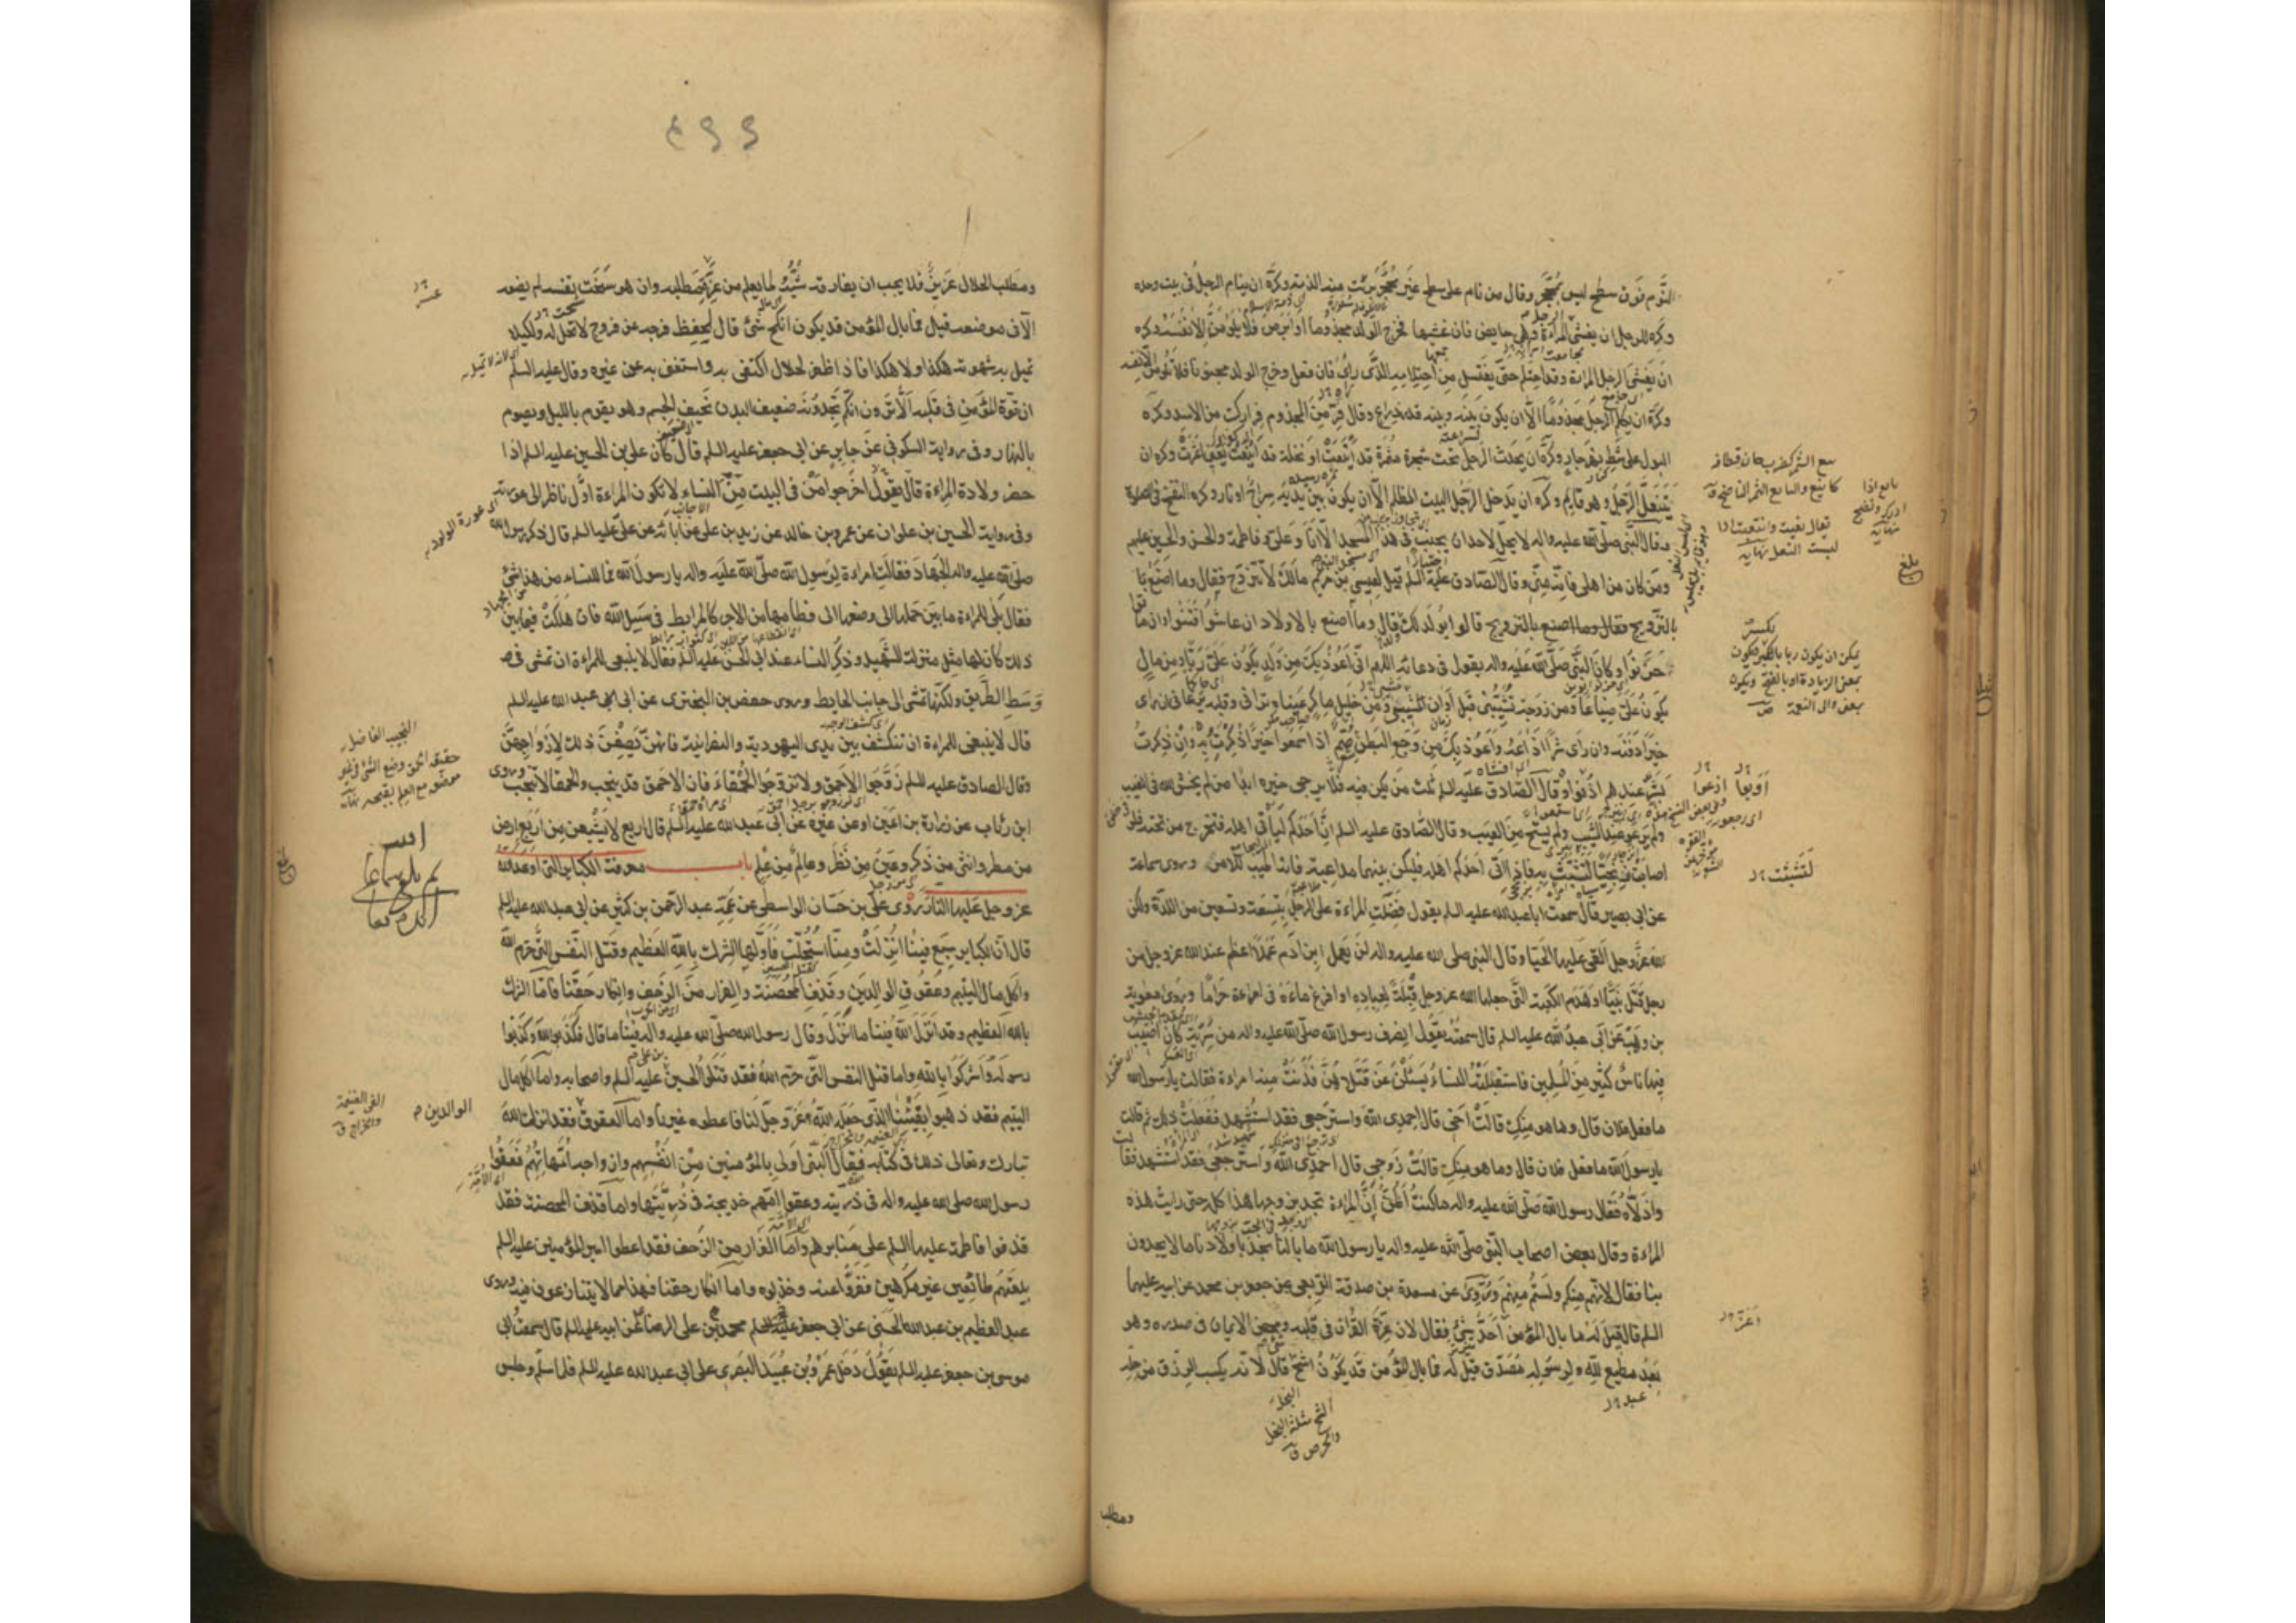 النوم فوق سطح ليس بمحجر وقال من نام على سطح غير محجر برئت منه الذمة وكره ان ينام الرجل في بيت وحده
وكره للرجل ان يغشى المراة وهي حايض فان غشيها فخرج الولد مجذوما او ابرص فلا يلومن الا نفسه وكره
ان يغشى الرجل المراة وقد احتلم حتى يغتسل من احتلامه الذي راى فان فعل وخرج الولد مجنونا فلا يلومن الا نفسه
وكره ان يكلم الرجل مجذوما الا ان يكون بينه وبينه قدر ذراع وقال فر من المجذوم فرارك من الاسد وكره
البول على شط نهر جار وكره ان يحدث الرجل تحت شجرة مثمرة قد اينعت او نخلة قد اينعت يعني اثمرت وكره ان
يتنعل الرجل وهو قايم وكره ان يدخل الرجل البيت المظلم الا ان يكون بين يديه سراج او نار وكره النفخ في الصلوة
وقال النبي صلى الله عليه واله لا يحل لاحد ان يجنب في هذا المسجد الا انا وعلي وفاطمة والحسن والحسين عليهم
ومن كان من اهلي فانه مني وقال الصادق عليه السلم قيل لعيسى بن مريم مالك لا تتزوج فقال وما اصنع
بالتزويج قالوا يولد لك قال وما اصنع بالاولاد ان عاشوا فتنوا وان ماتوا
حزنوا وكان النبي صلى الله عليه واله يقول في دعائه اللهم اني اعوذ بك من ولد يكون علي ربا ومن مال
يكون علي ضياعا ومن زوجة تشيبني قبل اوان المشيب ومن خليل ماكر عيناه تراني وقلبه يرعاني ان راى
خيرا دفنه وان راى شرا اذاعه واعوذ بك من وجع البطن صم اذا سمعوا خيرا ذكرت به وان ذكرت
بشر عندهم اذنوا وقال الصادق عليه السلم ثلث من يكن فيه فلا يرجى خيره ابدا من لم يخش الله في الغيب
ولم يرعو عند الشيب ولم يستح من العيب وقال الصادق عليه السلم ان احدكم لياتي اهله فتخرج من تحته فلو
اصابت زنجيا لتشبثت به فاذا اتى احدكم اهله فليكن بينهما مداعبة فانه اطيب للامر وروى سماعة
عن ابي بصير قال سمعت ابا عبد الله عليه السلم يقول فضلت المراءة على الرجل بتسعة وتسعين من اللذة ولكن
الله عز وجل القى عليها الحيا وقال النبي صلى الله عليه واله لن يعمل ابن ادم عملا اعظم عند الله عز وجل من
رجل قتل نبيا او هدم الكعبة التي جعلها الله عز وجل قبلة لعباده او افرغ ماءه في امراءة حراما وروى معوية
بن وهب عن ابي عبد الله عليه السلم قال سمعته يقول انصرف رسول الله صلى الله عليه واله من سرية كان اصيب
فيها ناس كثير من المسلمين فاستقبلته النساء يسئلن عن قتلاهن فدنت منه امراءة فقالت يا رسول الله
ما فعل فلان قال وما هو منك قالت اخي قال احمدي الله واسترجعي فقد استشهد ففعلت ذلك ثم قالت
يا رسول الله ما فعل فلان قال وما هو منك قالت زوجي قال احمدي الله واسترجعي فقد استشهد فقالت
واذلاه فقال رسول الله صلى الله عليه واله ما كنت اظن ان المراءة تجد بزوجها هذا كله حتى رايت هذه
المراءة وقال بعض اصحاب النبي صلى الله عليه واله يا رسول الله ما بالنا نجد باولادنا ما لا يجدون
بنا فقال لانهم منكم ولستم منهم وروي عن مسعدة بن صدقة الربعي عن جعفر بن محمد عن ابيه عليهما
السلم قال قيل له ما بال المؤمن احد شئ فقال لان عز القران في قلبه ومحض الايمان في صدره وهو
بعد مطيع لله ولرسوله مصدق قيل له فما بال المؤمن قد يكون اشح قال لانه يكسب الرزق من حله
ومطلب
بيع الثمر
تعال
لبست النعل نهاية
يمكن ان يكون ربا بالكسر فيكون
بمعنى الزيادة او بالفتح ويكون
بلغ
لتشبثت
اعز
الشح مثلثة البخل
والحرص ق
٤٩٩
ومطلب الحلال عزيز فلا يجب ان يفارقه شيئه لما يعلم من عز مطلبه وان هو سخت نفسه لم يضعه
الا في موضعه قيل فما بال المؤمن قد يكون انكح شئ قال لحفظ فرجه عن فروج لا تحل له ولكيلا
تميل به شهوته هكذا ولا هكذا فاذا ظفر بالحلال اكتفى به واستغنى به عن غيره وقال عليه السلم
ان قوة المؤمن في قلبه الا ترون انكم تجدونه ضعيف البدن نحيف الجسم وهو يقوم بالليل ويصوم
بالنهار وفي رواية السكوني عن جابر عن ابي جعفر عليه السلم قال كان علي بن الحسين عليه السلم اذا
حضر ولادة المراءة قال يقول اخرجوا من في البيت من النساء لا تكون المراءة اول ناظر الى عورته
وفي رواية الحسين بن علوان عن عمرو بن خالد عن زيد بن علي عن ابائه عن علي عليه السلم قال ذكر رسول الله
صلى الله عليه واله الجهاد فقالت امراءة لرسول الله صلى الله عليه واله يا رسول الله فما للنساء من هذا شئ
فقال بلى للمراءة ما بين حملها الى وضعها الى فطامها من الاجر كالمرابط في سبيل الله فان هلكت فيما بين
ذلك كان لها مثل منزلة الشهيد وذكر النساء عند ابي الحسن عليه السلم فقال لا ينبغي للمراءة ان تمشي في
وسط الطريق ولكنها تمشي الى جانب الحايط وروى حفص بن البختري عن ابي عبد الله عليه السلم
قال لا ينبغي للمراءة ان تنكشف بين يدي اليهودية والنصرانية فانهن يصفن ذلك لازواجهن
وقال الصادق عليه السلم زوجوا الاحمق ولا تزوجوا الحمقاء فان الاحمق قد ينجب والحمقا لا تنجب وروى
ابن رئاب عن زرارة بن اعين او عن غيره عن ابي عبد الله عليه السلم قال اربع لا يشبعن من اربع ارض
من مطر وانثى من ذكر وعين من نظر وعالم من علم باب معرفة الكباير التي اوعد الله
عز وجل عليها النار روى علي بن حسان الواسطي عن عمه عبد الرحمن بن كثير عن ابي عبد الله عليه السلم
قال ان الكباير سبع فينا انزلت ومنا استحلت فاولها الشرك بالله العظيم وقتل النفس التي حرم الله
واكل مال اليتيم وعقوق الوالدين وقذف المحصنة والفرار من الزحف وانكار حقنا فاما الشرك
بالله العظيم وقد انزل الله فينا ما انزل وقال رسول الله صلى الله عليه واله فينا ما قال فكذبوا الله وكذبوا
رسوله واشركوا بالله واما قتل النفس التي حرم الله فقد قتلوا الحسين عليه السلم واصحابه واما اكل مال
اليتيم فقد ذهبوا بفيئنا الذي جعله الله عز وجل لنا فاعطوه غيرنا واما العقوق فقد انزل الله
تبارك وتعالى ذلك في كتابه فقال النبي اولى بالمؤمنين من انفسهم وازواجه امهاتهم فعقوا
رسول الله صلى الله عليه واله في ذريته وعقوا امهم خديجة في ذريتها واما قذف المحصنة فقد
قذفوا فاطمة عليها السلم على منابرهم واما الفرار من الزحف فقد اعطوا امير المؤمنين عليه السلم
بيعتهم طائعين غير مكرهين ففروا عنه وخذلوه واما انكار حقنا فهذا مما لا يتنازعون فيه وروى
عبد العظيم بن عبد الله الحسني عن ابي جعفر محمد بن علي الرضا عن ابيه عليه السلم قال سمعت ابي
موسى بن جعفر عليه السلم يقول دخل عمرو بن عبيد البصري على ابي عبد الله عليه السلم فلما سلم وجلس
النجيب الفاضل
حقيقة الحمق وضع الشئ في غير
موضعه مع العلم بقبحه نهاية
الوالدين
الفئ الغنيمة
والخراج ق